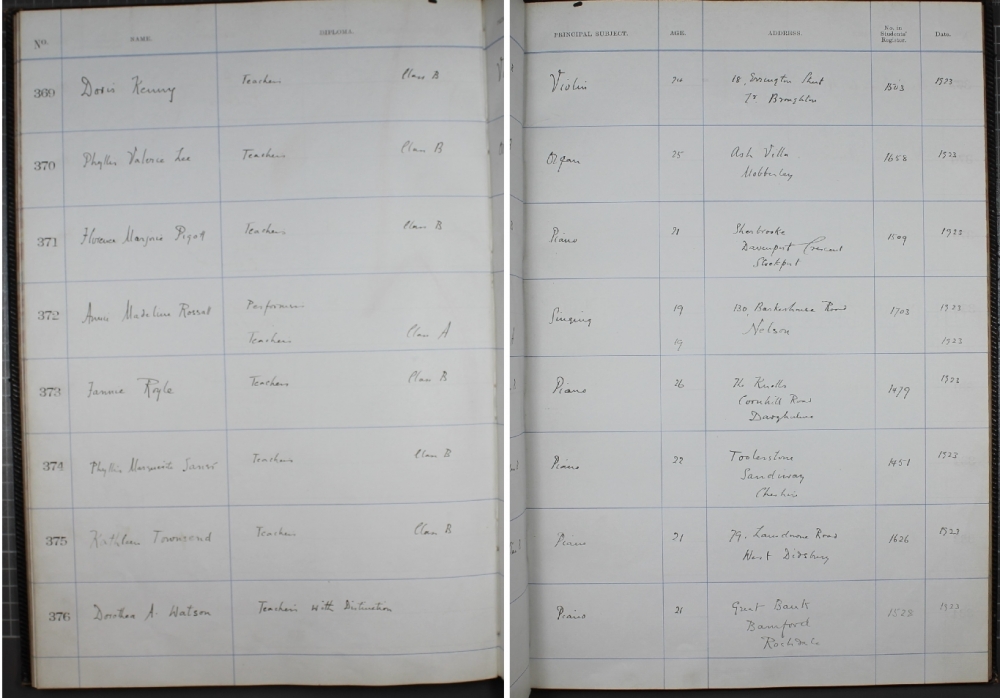 No. NAME. DIPLOMA. PRINCIPAL SUBJECT. AGE. ADDRESS. No. in Students' Register. Date.
369 Doris Kenny Teachers Class B Violin 18, Errington Street 1923
Tr Broughton
370 Phyllis Valerie Lee Teachers Class B Organ 25 Ash Villa 1658 1923
Mobberley
371 Florence Marjorie Pigot Teachers Class B Piano 21 Sherbrooke 1509 1923
Davenport Crescent
Stockport
372 Annie Madeline Rossal Performers Singing 19 130, Barkerhouse Road 1703 1923
Teachers Class A 19 Nelson 1923
373 Fannie Royle Teachers Class B Piano 26 The Knolls 1479 1923
Cornhill Road
374 Phyllis Marguerite Teachers Class B Piano 22 1451 1923
Sandiway
Cheshire
375 Kathleen Townsend Teachers Class B Piano 21 79, Lansdowne Road 1626 1923
West Didsbury
376 Dorothea A. Watson Teachers with Distinction Piano 21 Great Bank 1528 1923
Bamford
Rochdale